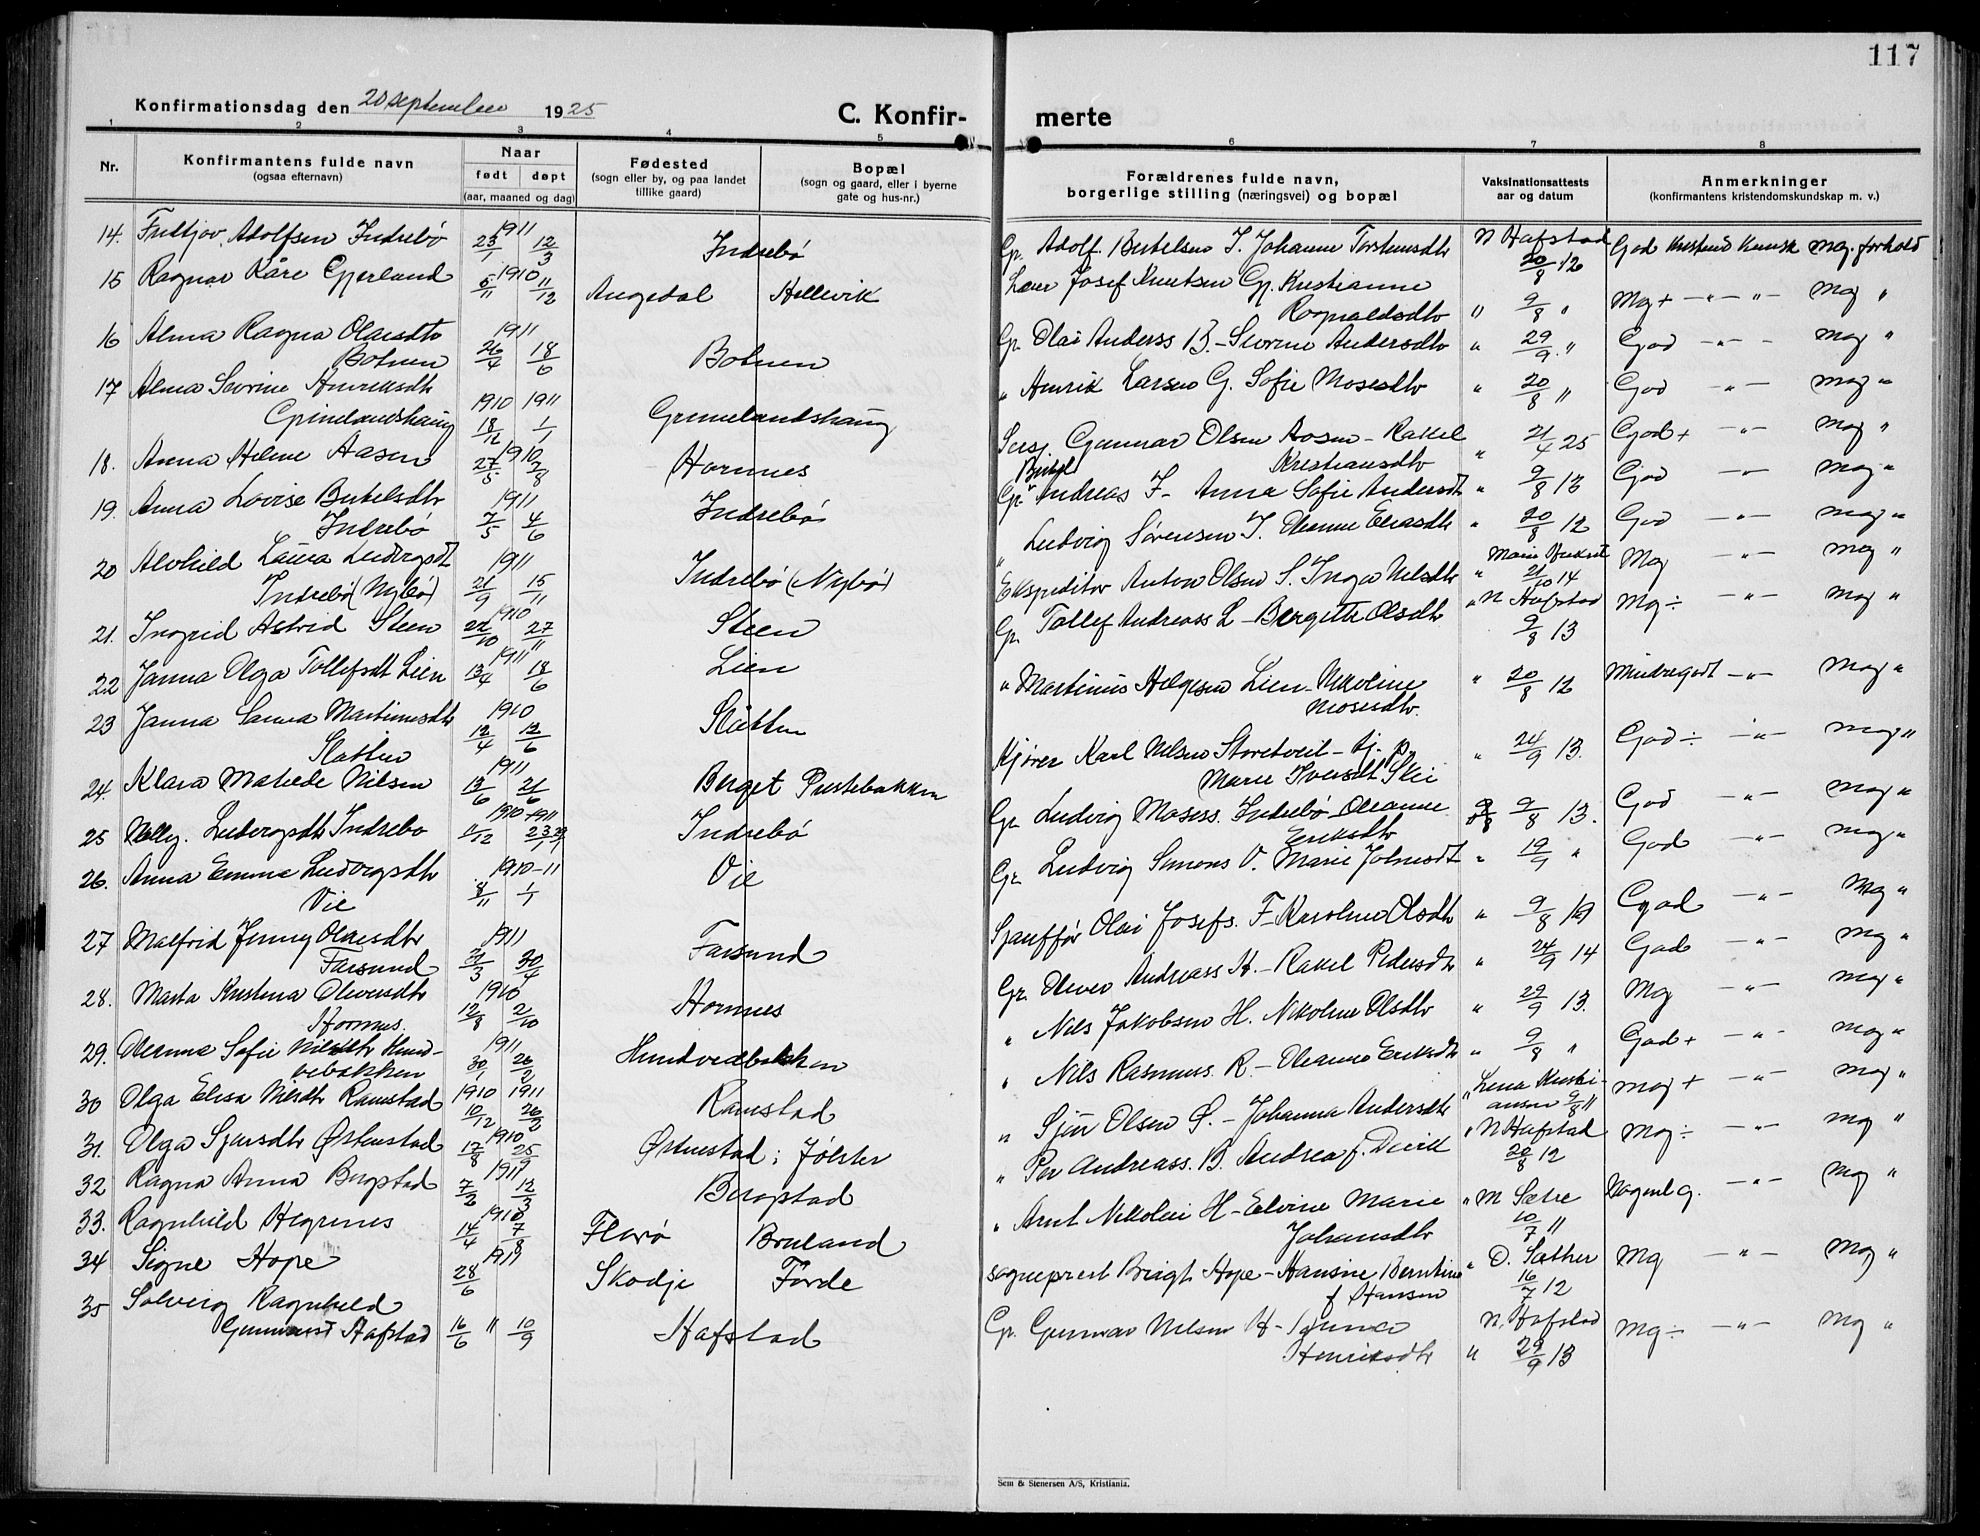 117
Konfirmationsdag den 20 september 1925
C. Konfir-
merte
1 2 3 4 5 6 7 8
Nr.
Konfirmantens fulde navn
(ogsaa efternavn)
Naar
født døpt
(aar, maaned og dag)
Fødested
(sogn eller by, og paa landet
tillike gaard)
Bopæl
(sogn og gaard, eller i byerne
gate og hus-nr.)
Forældrenes fulde navn,
borgerlige stilling (næringsvei) og bopæl
Vaksinationsattests
aar og datum
Anmerkninger
(konfirmantens kristendomskundskap m. v.)
14. Fridtjov Adolfsen Indrebø 1911 23/1 12/3 Indrebø
Gr. Adolf Bertelsen I. Johanne Torstensdtr N Hafstad 20/8 12 God kristend kunsk mg. forhold
15 Ragnar Kåre Gjerland 1910 5/11 11/12 Angedal Hellevik
Lærer Josef Knutsen Gj. Kristianne
Rognaldsdtr " 9/8 " Mg + - " - " - mg "
16 Alma Ragna Olaisdtr
Botnen 1911 26/4 18/6 Botnen
Gr. Olai Anderss B. - Severine Andersdtr " 29/9 " God - " - mg "
17 Alma Severine Henriksdtr
Grimelandshaug 1910 1911 18/12 1/1 Grimelandshaug
" Henrik Larsen G. Sofie Mosesdtr " 20/8 " God - " - mg "
18. Anna Helene Aasen 1910 27/5 2/8 Hornnes
Sersj. Gunnar Olsen Aasen - Rakel
Kristiansdtr " 21/4 25 God + - " - mg "
19. Anna Lovise Bertelsdtr
Indrebø 1911 7/5 4/6 Indrebø
Gr. Andreas I - Anna Sofie Andersdt " 9/8 13 God - " - mg "
20 Alvhild Laura Ludvigsdt
Indrebø (Nybø) 1911 21/9 15/11 Indrebø (Nybø)
" Ludvig Sørensen I. Oleanne Eliasdtr " 20/8 12 God - " - mg "
21. Ingrid Astrid Steen 1910 22/10 27/11 Steen
Ekspeditør Anton Olsen S. Inga Nilsdtr " 21/10 14 Mg - " - mg "
22 Janna Olga Tollefsdt Lien 1911 13/4 18/6 Lien
Gr. Tollef Andreass L - Bergitte Olsdtr " N Hafstad 9/8 13 Mg ÷ - " - mg "
23 Janna Laura Martinusdtr
Slåtten 1910 12/4 12/6 Slåtten
" Martinus Helgesen Lien - Nikoline
Mosesdtr. " 20/8 12 Mindregodt - " - mg "
24. Klara Matilde Nilsen 1911 13/6 21/6 Berget Prestebakken
Kjører Karl Nilsen Storetveit - tj. p.
Marie Iversdt Skei " 24/9 13. God ÷ - " - mg "
25 Nelly Ludvigsdtr Indrebø 1910 - 1911 Indrebø
Gr. Ludvig Mosess. Indrebø Oleanne
Eriksdtr 9/8 13. God - " - mg "
26. Anna Emma Ludvigsdtr
Vie 1910-11 8/11 1/1 Vie
Gr. Ludvig Simons V. Marie Johnsdt " 19/9 " God - " - mg "
27 Malfrid Jenny Olaisdtr
Farsund 1911 31/3 30/4 Farsund
Sjauffør Olai Josefs. F - Karoline Olsdtr " 9/8 God - " - mg "
28. Marta Kristina Oliversdtr
Hornnes. 1910 12/8 2/10 Hornnes
Gr. Oliver Andreass H. - Rakel Pedersdtr " 24/9 14 God - " - mg "
29. Oleanna Sofie Nilsdtr Hund-
vebakken 1911 30/1 26/2 Hundvebakken
" Nils Jakobsen H. Nikoline Olsdtr " 29/9 13. Mg - " - mg "
30 Olga Elisa Nilsdtr Ramstad 1910 1911 10/12 26/3 Ramstad
" Nils Rasmus. R. - Oleanne Eriksdtr " 9/8 " God + - " - mg "
31. Olga Sjursdtr Østenstad 1910 17/8 25/9 Østenstad i Jølster
" Sjur Olsen Ø. - Johanna Andersdtr " Lina Kristi-
ansen 9/8 " mg + - " - mg "
32 Ragna Anna Bergstad 1911 7/2 12/3 Bergstad
" Per Andreass. B. Andrea f. Devik " N Hafstad 20/8 12 mg ÷ - " - mg "
33. Ragnhild Hegrenes 1910 14/4 7/8 Florø Bruland
" Arnt Nikolai H - Elvine Marie
Johansdtr " M Sætre 10/7 " - " - mg "
34 Signe Hope 1911 28/6 Skodje Førde
sogneprest Brigt Hope - Hansine Berntine
f Hansen " O. Sæther 16/7 12 Mg - " - mg "
35 Solveig Ragnhild
Gunnarsdt Hafstad 16/6 " 10/9 Hafstad
Gr. Gunnar Nilsen H -
Henriksdtr N. Hafstad
" 29/9 13 mg ÷ - " - mg "
Sem & Stenersen A/S, Kristiania.